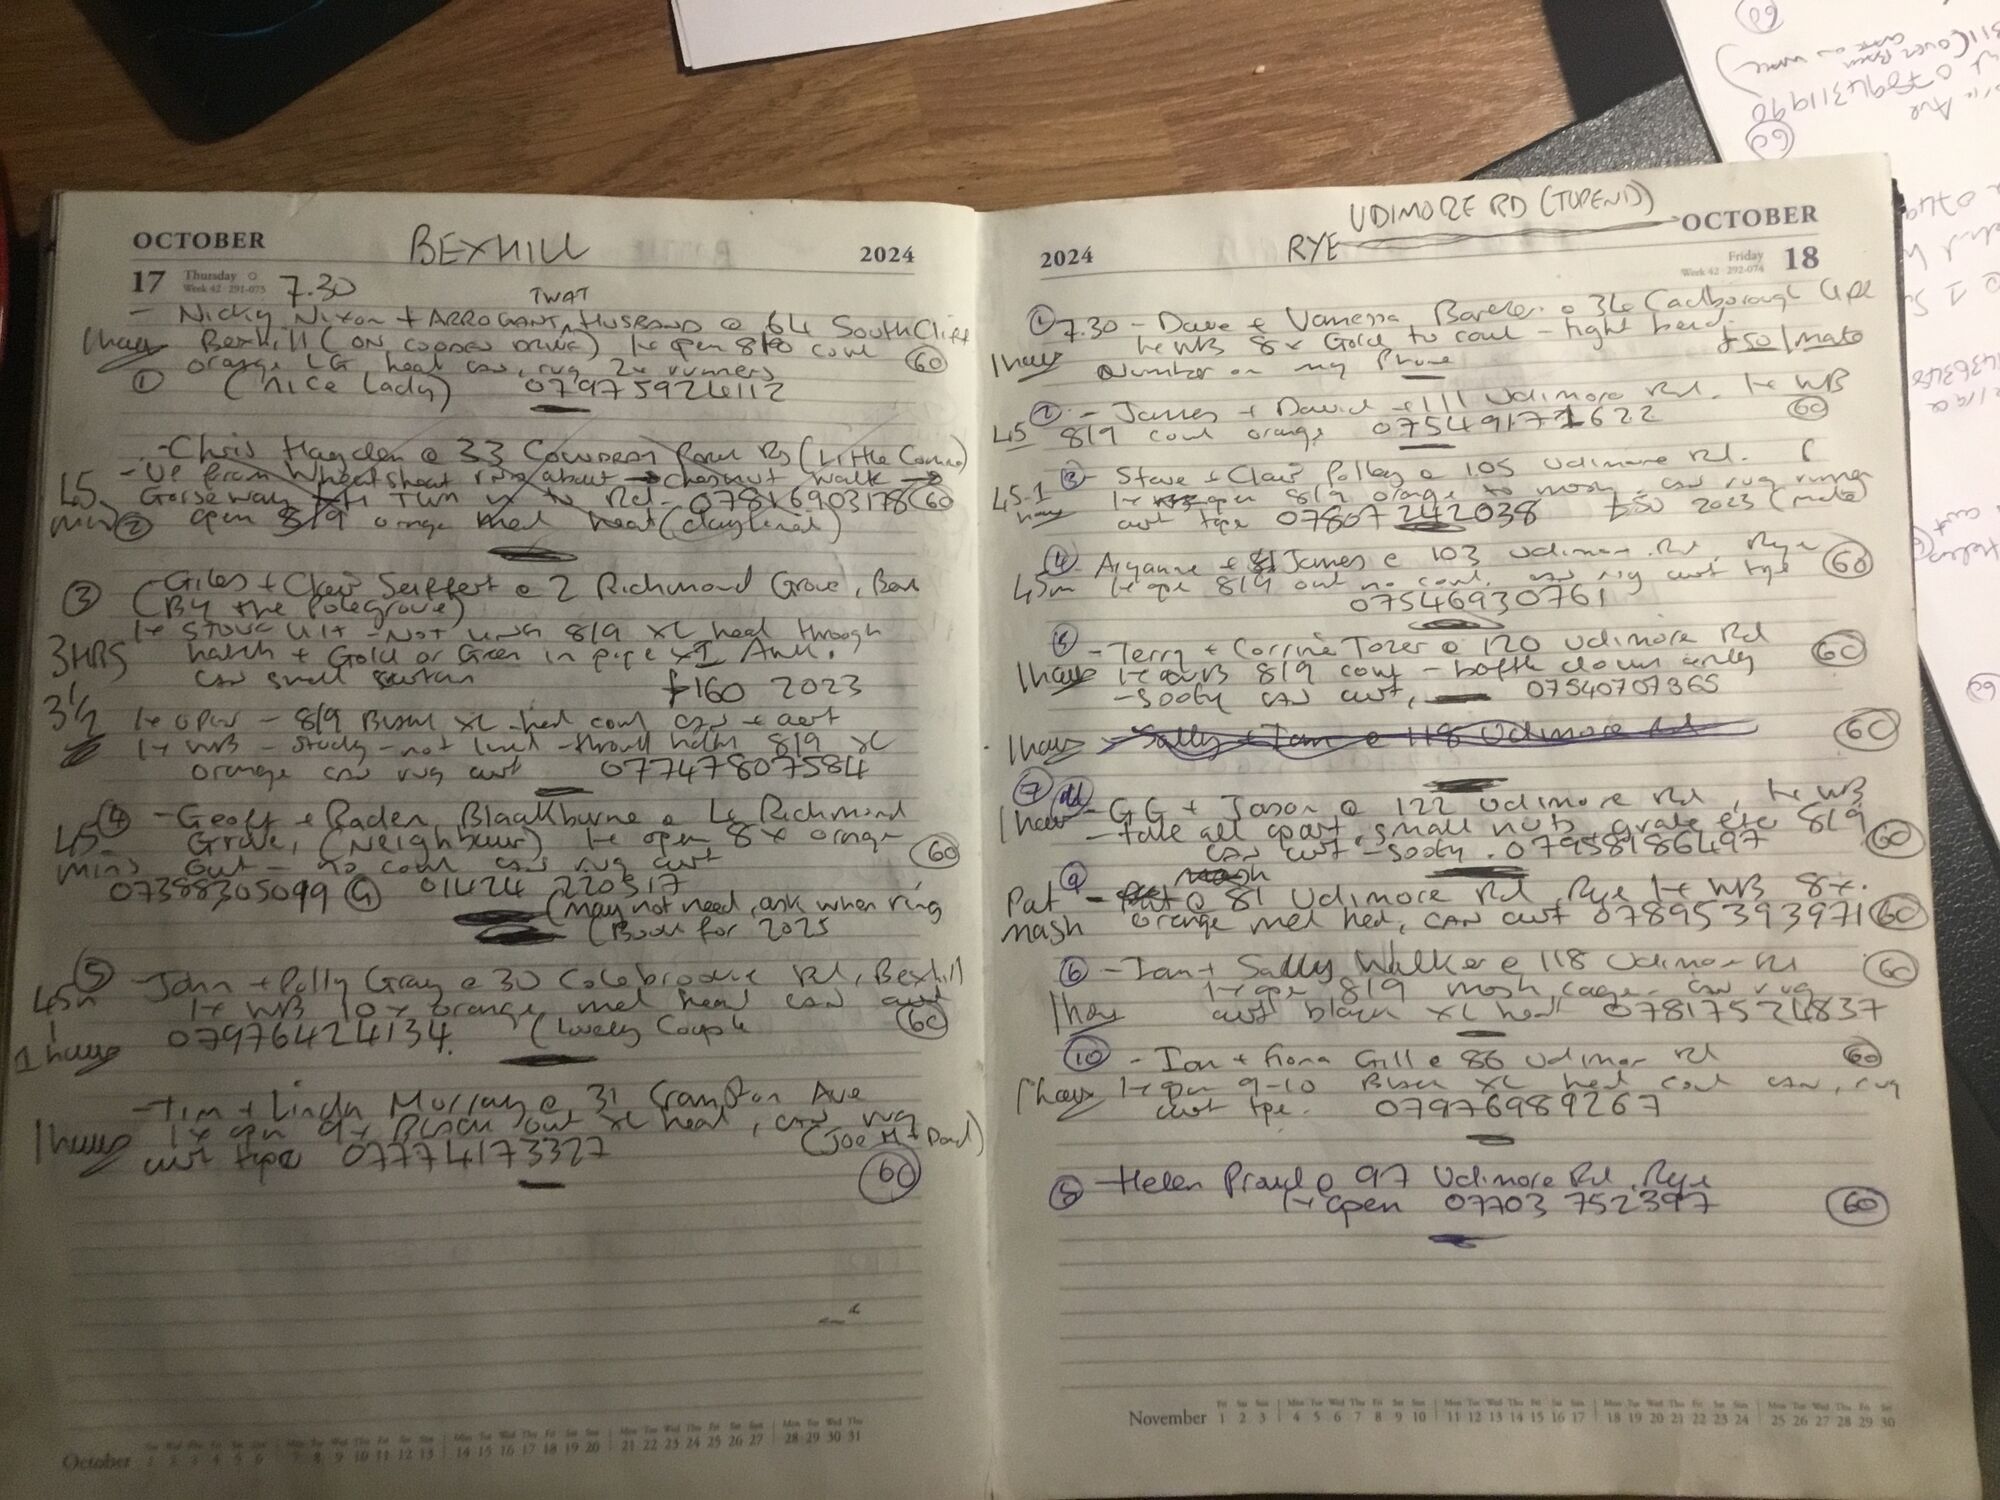 OCTOBER BEXHILL 2024
17 Thursday 7.30
Week 42 291-075
TWAT
- Nicky Nixon + ARROGANT HUSBAND @ 64 SouthCliff
1 hour Bexhill (ON COODEN DRIVE) 1x open 8/10 cowl 60
orange LG, heat can, rug 2x runners
① (nice lady) 07975926112
- Chris Hayden @ 33 Cowdray Park Rd (Little Common)
45 - UP from Wheatsheaf roundabout → Chestnut Walk →
Gorseway 4th Turn in to Rd - 07816903178 60
mins ② open 8/9 orange med head (clay liner)
③ - Giles + Clair Seiffert @ 2 Richmond Grove, Bex
(BY the Polegrove)
1x STOVE 8/9 XL head through
3HRS hatch + Gold or Green in pipe x1
can small
£160 2023
3½ 1x open - 8/9 Black XL head cowl can + awt
1x WB - study - not lined 8/9 XL
orange can rug awt 07747807584
④ - Geoff + Baden Blackburne @ 4 Richmond
45 Grove, (Neighbour) 1x open 8x orange
mins out - no cowl can rug awt 60
07388305099 G 01424 220517
(may not need, ask when ring
(Book for 2025
⑤ - John + Polly Gray @ 30 Colebrooke Rd, Bexhill
45m 1x WB 10x orange med head can awt
1 07976424134. (Lovely Couple 60
1 hour
- Tim + Linda Murray @ 31 Crampton Ave
1 hour 1x open 9x Black out XL head, can rug
awt tape 07774173327 (Joe M + Dad)
60
October
UDIMORE RD (TOPEND)
2024 RYE OCTOBER
Friday 18
Week 42 292-074
① 7.30 - Dave + Vanessa Barker @ 36 Cadborough
1 hour 1x WB 8x Gold to cowl - tight bend. £50/mate
Number on my Phone
② - James + David @ 111 Udimore Rd. 1x WB
45 8/9 cowl orange 07549171622 60
③ - Steve + Clair Polley @ 105 Udimore Rd.
45-1 1x open 8/9 orange to mesh, can rug runner
hour awt tape 07807242038 £50 2023 (mate)
④ Aryanne + James @ 103 Udimore Rd, Rye 60
45m 1x open 8/9 out no cowl. can rug awt tape
07546930761
⑤ - Terry + Corrine Tozer @ 120 Udimore Rd
1 hour 1x WB 8/9 cowl - baffle down only 60
- sooty can awt, 07540707365
1 hour - Sally + Ian @ 118 Udimore Rd 60
⑦ - GG + Jason @ 122 Udimore Rd, 1x WB
1 hour - take all apart, small nuts, grate etc 8/9
can awt - sooty. 07958986497 60
⑨ Mash
Pat - @ 81 Udimore Rd, Rye 1x WB 8x.
Mash orange med hed, can awt 07895393971 60
⑥ - Ian + Sally Walker @ 118 Udimore Rd 60
1x open 8/9 mesh cage - can rug
1 hour awt black XL head 07817524837
⑩ - Ian + Fiona Gill @ 86 Udimore Rd 60
1 hour 1x open 9-10 Black XL head cowl can, rug
awt tape. 07976989267
⑧ - Helen Proud @ 97 Udimore Rd, Rye
1x open 07703 752397 60
November 1 2 3 4 5 6 7 8 9 10 11 12 13 14 15 16 17 18 19 20 21 22 23 24 25 26 27 28 29 30